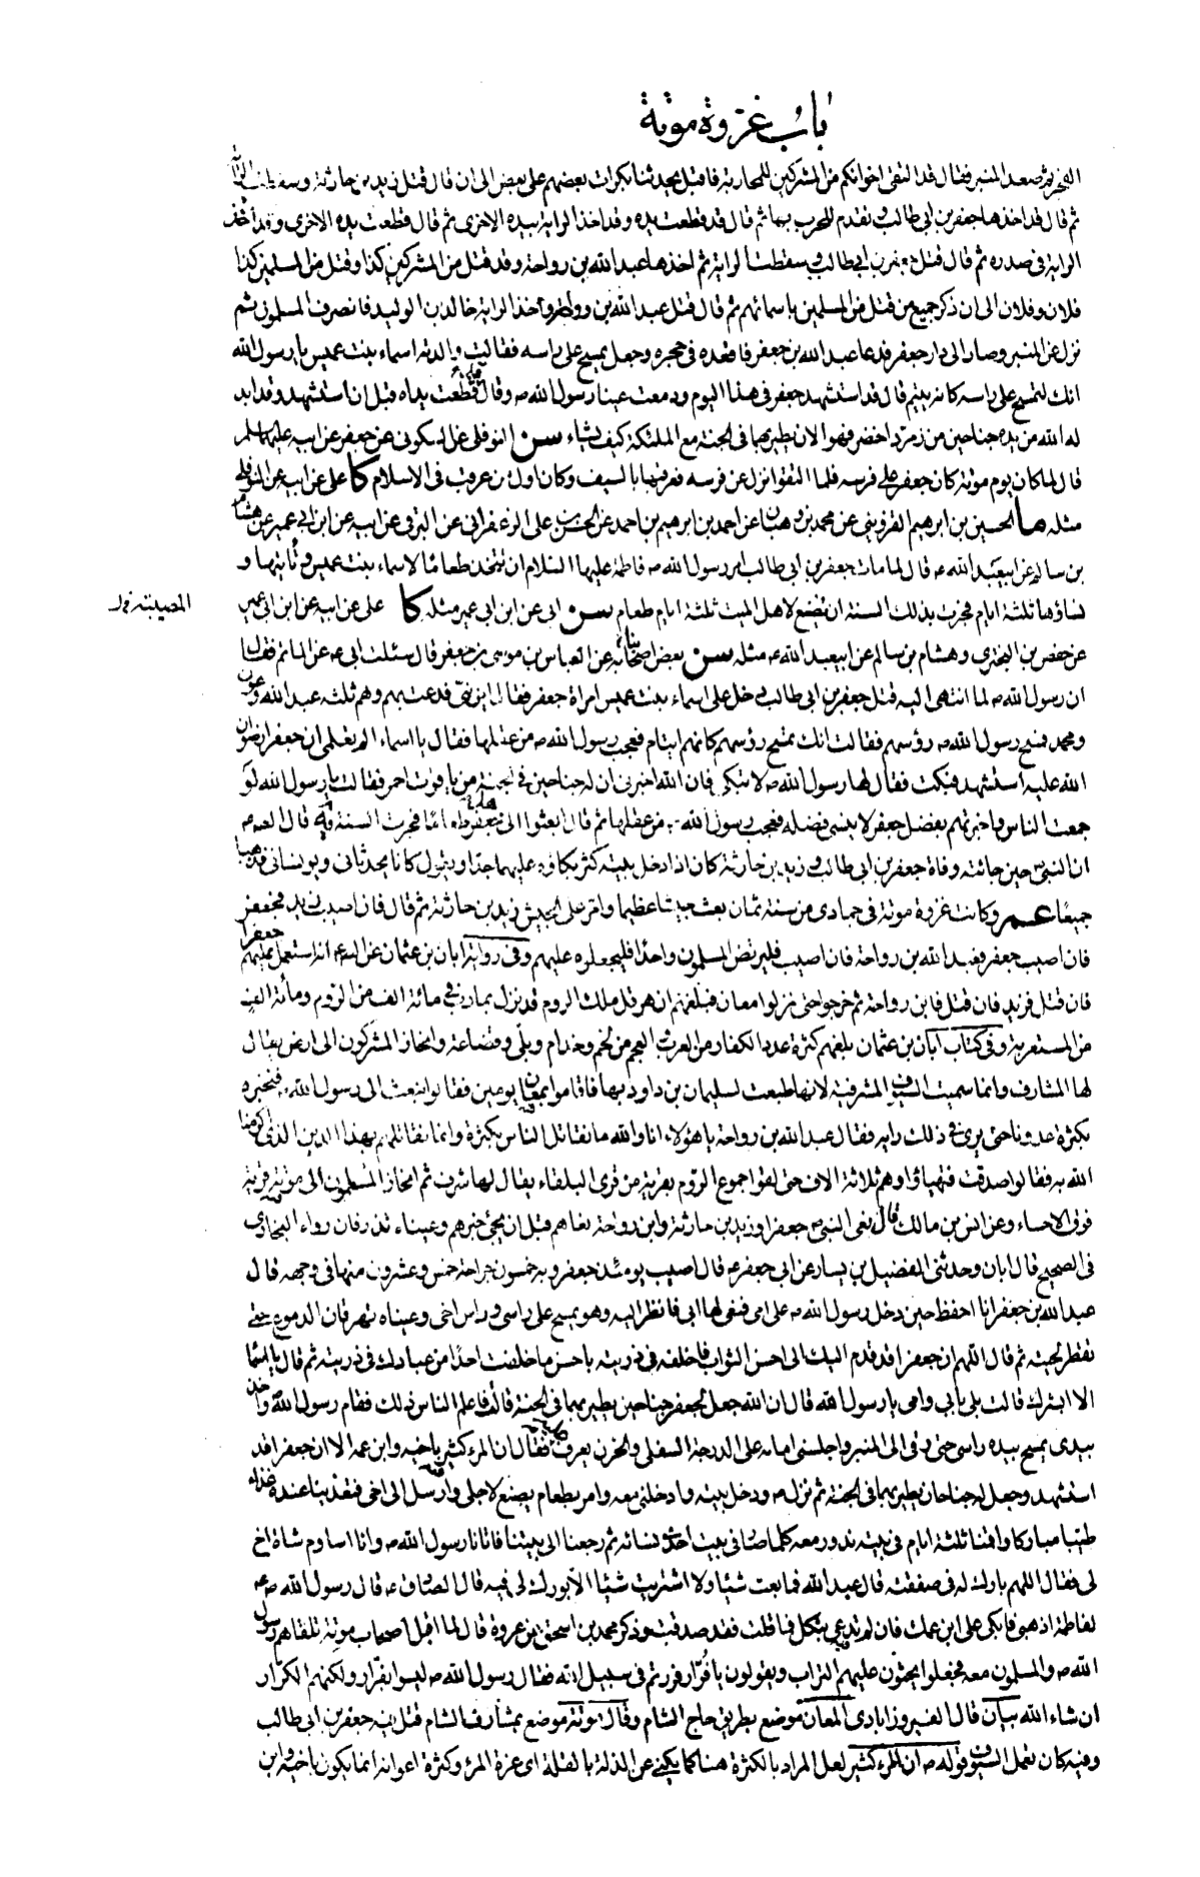 باب غزوة موتة
الفجر ثم صعد المنبر فقال قد التقى اخوانكم من المشركين للمحاربة فاقبل يحدثنا بكرات بعضهم على بعض الى ان قال قتل زيد بن حارثة وسقطت الراية
ثم قال قد اخذها جعفر بن ابي طالب وتقدم للحرب بها ثم قال قد قطعت يده وقد اخذ الراية بيده الاخرى ثم قال وقطعت يده الاخرى وقد اخذ
الراية في صدره ثم قال قتل جعفر بن ابي طالب وسقطت الراية ثم اخذها عبد الله بن رواحة وقد قتل من المشركين كذا وقتل من المسلمين كذا
فلان وفلان الى ان ذكر جميع من قتل من المسلمين باسمائهم ثم قال قتل عبد الله بن رواحة واخذ الراية خالد بن الوليد فانصرف المسلمون ثم
نزل عن المنبر وصار الى دار جعفر فدعا عبد الله بن جعفر فاقعده في حجره وجعل يمسح على راسه فقالت والدته اسماء بنت عميس يا رسول الله
انك لتمسح على راسه كانه يتيم قال قد استشهد جعفر في هذا اليوم ودمعت عينا رسول الله ص وقال قطعت يداه قبل ان استشهد وقد ابد
له الله من يديه جناحين من زمرد اخضر فهو الان يطير بهما في الجنة مع الملئكة كيف يشاء سن النوفلي عن السكوني عن جعفر عن ابيه عليهما السلم
قال لما كان يوم موتة كان جعفر على فرسه فلما التقوا نزل عن فرسه فعرقبها بالسيف وكان اول من عرقب في الاسلام كا علي عن ابيه عن النوفلي
مثله ما الحسين بن ابرهيم القزويني عن محمد بن وهبان عن احمد بن ابرهيم بن احمد عن الحسن بن علي الزعفراني عن البرقي عن ابيه عن ابن ابي عمير عن هشام
بن سالم عن ابيعبد الله ع قال لما مات جعفر بن ابي طالب امر رسول الله ص فاطمة عليها السلام ان تتخذ طعاما لاسماء بنت عميس وتاتيها و
نساؤها ثلثة ايام فجرت بذلك السنة ان يصنع لاهل الميت ثلثة ايام طعام سن ابي عن ابن ابي عمير مثله كا علي عن ابيه عن ابن ابي عمير
المصيبة
عن حفص بن البختري وهشام بن سالم عن ابيعبد الله ع مثله سن بعض اصحابنا عن العباس بن موسى بن جعفر قال سئلت ابي ع عن الماتم فقال
ان رسول الله ص لما انتهى اليه قتل جعفر بن ابي طالب دخل على اسماء بنت عميس امراة جعفر فقال اين بني فدعت بهم وهم ثلثة عبد الله وعون
ومحمد فمسح رسول الله ص رؤسهم فقالت انك تمسح رؤسهم كانهم ايتام فعجب رسول الله ص من عقلها فقال يا اسماء الم تعلمي ان جعفرا رضوان
الله عليه استشهد فبكت فقال لها رسول الله ص لا تبكي فان الله اخبرني ان له جناحين في الجنة من ياقوت احمر فقالت يا رسول الله لو
جمعت الناس واخبرتهم بفضل جعفر لا ينسى فضله فعجب رسول الله ص من عقلها ثم قال ابعثوا الى اهل جعفر طعاما فجرت السنة قال
ان النبي ص حين جائته وفاة جعفر بن ابي طالب وزيد بن حارثة كان اذا دخل بيته كثر بكاؤه عليهما جدا ويقول كانا يحدثاني ويونساني فذهبا
جميعا عم وكانت غزوة موتة في جمادى من سنة ثمان بعث جيشا عظيما وامر على الجيش زيد بن حارثة ثم قال فان اصيب زيد فجعفر
فان اصيب جعفر فعبد الله بن رواحة فان اصيب فليرتض المسلمون واحدا فليجعلوه عليهم وفي رواية ابان بن عثمان عن الص ع انه استعمل عليهم جعفرا
فان قتل فزيد فان قتل فابن رواحة ثم خرجوا حتى نزلوا معان فبلغهم ان هرقل ملك الروم قد نزل بمارب في مائة الف من الروم ومائة الف
من المستعربة وفي كتاب ابان بن عثمان بلغهم كثرة عدد الكفار من العرب والعجم من لخم وجذام وبلي وقضاعة وانحاز المشركون الى ارض يقال
لها المشارف وانما سميت السيوف المشرفية لانها طبعت لسليمان بن داود بها فاقاموا بمعان يومين فقالوا نبعث الى رسول الله ص فنخبره
بكثرة عدونا حتى يرى في ذلك رايه فقال عبد الله بن رواحة يا هؤلاء انا والله ما نقاتل الناس بكثرة وانما نقاتلهم بهذا الدين الذي اكرمنا
الله به فقالوا صدقت فتهياوا وهم ثلاثة الاف حتى لقوا جموع الروم بقرية من قرى البلقاء يقال لها شرف ثم انحاز المسلمون الى موتة قرية
فوق الاحساء وعن انس بن مالك قال نعى النبي ص جعفرا وزيد بن حارثة وابن رواحة نعاهم قبل ان يجئ خبرهم وعيناه تذرفان رواه البخاري
في الصحيح قال ابان وحدثني الفضيل بن يسار عن ابي جعفر ع قال اصيب يومئذ جعفر وبه خمسون جراحة خمس وعشرون منها في وجهه قال
عبد الله بن جعفر انا احفظ حين دخل رسول الله ص على امي فنعى لها ابي فانظر اليه وهو يمسح على راسي وراس اخي وعيناه تهرقان الدموع حتى
تقطر لحيته ثم قال اللهم ان جعفرا قد قدم اليك الى احسن الثواب فاخلفه في ذريته باحسن ما خلفت احدا من عبادك في ذريته ثم قال يا اسما
الا ابشرك قالت بلى بابي وامي يا رسول الله قال ان الله جعل لجعفر جناحين يطير بهما في الجنة قالت فاعلم الناس ذلك فقام رسول الله ص واخذ
بيدي يمسح بيده راسي حتى رقى الى المنبر واجلسني امامه على الدرجة السفلى والحزن يعرف عليه فقال ان المرء كثير باخيه وابن عمه الا ان جعفرا قد
استشهد وجعل له جناحان يطير بهما في الجنة ثم نزل ص ودخل بيته وادخلني معه وامر بطعام يصنع لاجلي وارسل الى اخي فتغدينا عنده غداء
طيبا مباركا واقمنا ثلثة ايام في بيته ندور معه كلما صار في بيت احدى نسائه ثم رجعنا الى بيتنا فاتانا رسول الله ص وانا اساوم شاة اخ
لي فقال اللهم بارك له في صفقته قال عبد الله فما بعت شيئا ولا اشتريت شيئا الا بورك لي فيه قال الصادق ع قال رسول الله ص
لفاطمة اذهبي فابكي على ابن عمك فان لم تدعي بثكل فما قلت فقد صدقت وذكر محمد بن اسحق عن عروة قال لما اقبل اصحاب موتة تلقاهم رسول
الله ص والمسلمون معه فجعلوا يحثون عليهم التراب ويقولون يا فرار فررتم في سبيل الله فقال رسول الله ص ليسوا بفرار ولكنهم الكرار
ان شاء الله بيان قال الفيروزابادي المعان موضع بطريق حاج الشام وقال موتة موضع بمشارف الشام قتل فيه جعفر بن ابي طالب
وفيه كان تعمل السيوف قوله ص ان المرء كثير لعل المراد بالكثرة هنا كما يكنى عن الذلة بالقلة اي عزة المرء وكثرة اعوانه انما يكون باخيه وابن